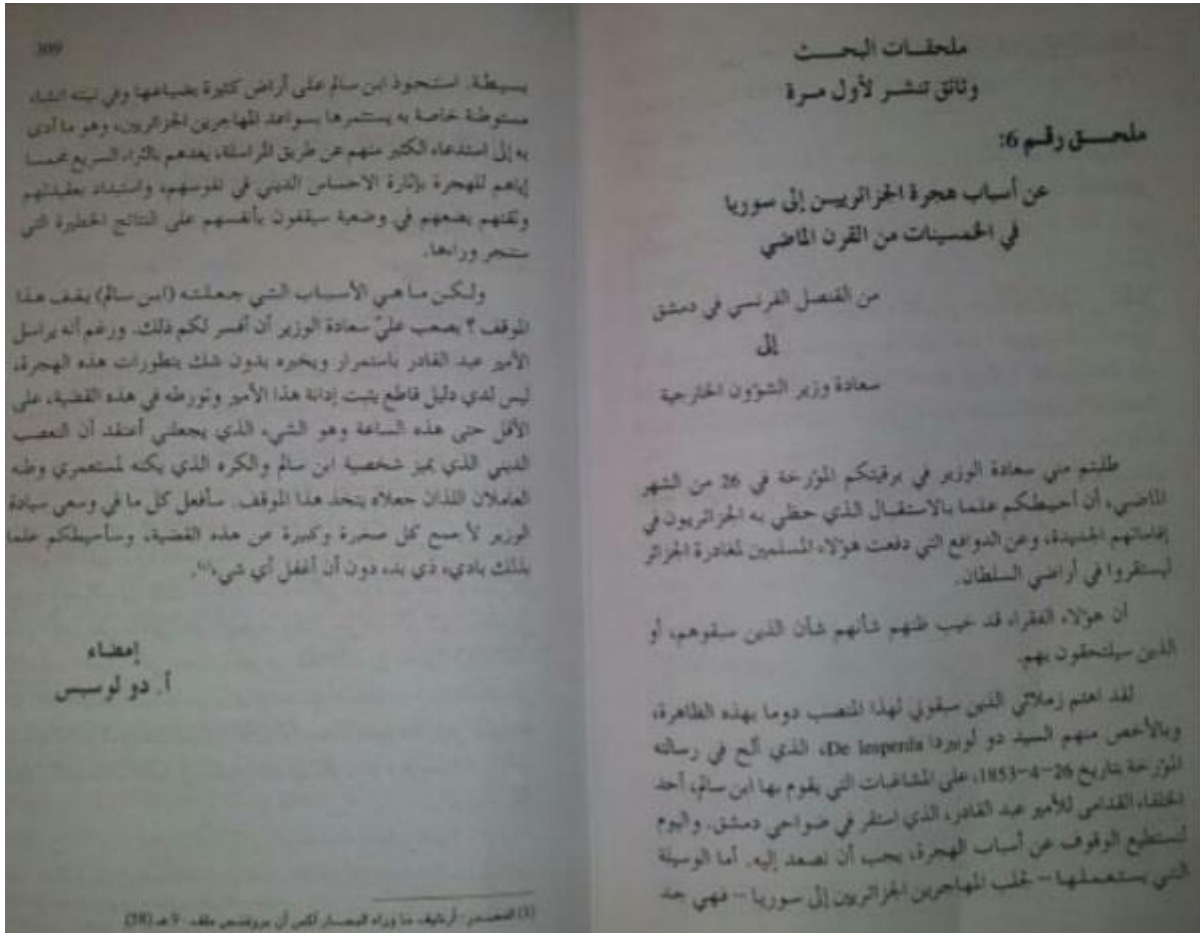 ملحقات البحث
وثائق تنشر لأول مرة
ملحق رقم 6:
عن أسباب هجرة الجزائريين إلى سوريا
في الخمسينات من القرن الماضي
من القنصل الفرنسي في دمشق
إلى
سعادة وزير الشؤون الخارجية
طلبتم مني سعادة الوزير في برقيتكم المؤرخة في 26 من الشهر
الماضي، أن أحيطكم علما بالاستقبال الذي حظي به الجزائريون في
إقاماتهم الجديدة، وعن الدوافع التي دفعت هؤلاء المسلمين لمغادرة الجزائر
ليستقروا في أراضي السلطان.
ان هؤلاء الفقراء قد خيب ظنهم شأنهم شأن الذين سبقوهم، أو
الذين سيلتحقون بهم.
لقد اهتم زملائي الذين سبقوني لهذا المنصب دوما بهذه الظاهرة،
وبالأخص منهم السيد دو لوبيردا De lesperda، الذي ألح في رسالته
المؤرخة بتاريخ 26-4-1853، على المشاغبات التي يقوم بها ابن سالم، أحد
الخلفاء القدامى للأمير عبد القادر، الذي استقر في ضواحي دمشق. واليوم
لنستطيع الوقوف عن أسباب الهجرة، يجب أن نصعد إليه. أما الوسيلة
التي يستعملها - لجلب المهاجرين الجزائريين إلى سوريا - فهي جد
309
بسيطة. استحوذ ابن سالم على أراض كثيرة بضياعها وفي نيته انشاء
مستوطنة خاصة به يستثمرها بسواعد المهاجرين الجزائريين، وهو ما أدى
به إلى استدعاء الكثير منهم عن طريق المراسلة، يعدهم بالثراء السريع محمسا
إياهم للهجرة بإثارة الاحساس الديني في نفوسهم، واستبداد بعقيدتهم
وثقتهم يضعهم في وضعية سيقفون بأنفسهم على النتائج الخطيرة التي
ستنجر وراءها.
ولكن ما هي الأسباب التي جعلته (ابن سالم) يقف هذا
الموقف؟ يصعب عليّ سعادة الوزير أن أفسر لكم ذلك. ورغم أنه يراسل
الأمير عبد القادر باستمرار ويخبره بدون شك بتطورات هذه الهجرة،
ليس لدي دليل قاطع يثبت إدانة هذا الأمير وتورطه في هذه القضية، على
الأقل حتى هذه الساعة وهو الشيء الذي يجعلني أعتقد أن التعصب
الديني الذي يميز شخصية ابن سالم والكره الذي يكنه لمستعمري وطنه
العاملان اللذان جعلاه يتخذ هذا الموقف. سأفعل كل ما في وسعي سيادة
الوزير لأجمع كل صغيرة وكبيرة عن هذه القضية، وسأحيطكم علما
بذلك بادىء ذي بدء دون أن أغفل أي شيء(1).
إمضاء
أ. دو لوسبس
(1) المصدر: أرشيف ما وراء البحار أكس أن بروفنس ملف 9 هـ